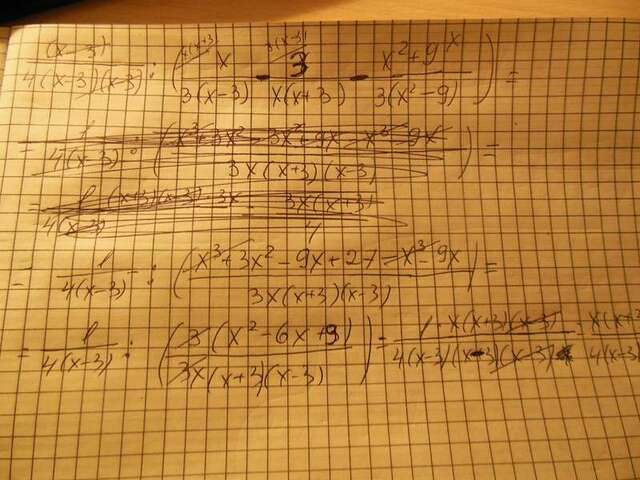 (x-3)/4(x-3)(x-3) : (x/3(x-3) - 3/x(x+3) - x²+9/3(x²-9)) =
= 1/4(x-3) : (x³+3x²-3x²-9x-x³-9x/3x(x+3)(x-3)) =
= 1/4(x-3)
= 1/4(x-3) : (x³+3x²-9x+27-x³-9x/3x(x+3)(x-3)) =
= 1/4(x-3) : (3(x²-6x+9)/3x(x+3)(x-3)) = 1·x(x+3)(x-3)/4(x-3)(x-3)(x-3)